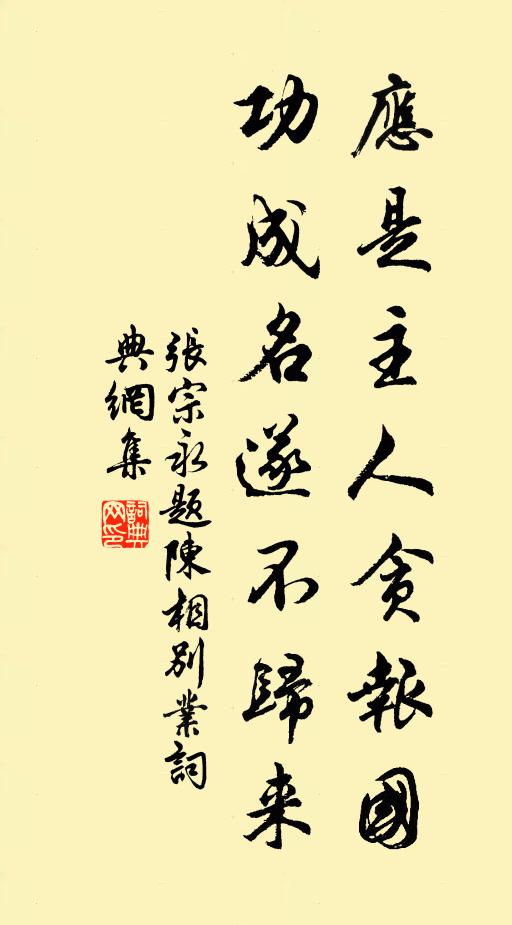 應是主人貪報國
功成名遂不歸来
張宗永題陳相別業詞
典網集
詞典網印